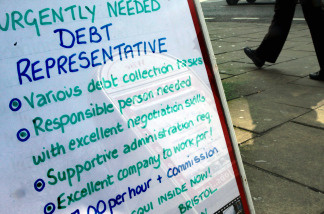 URGENTLY NEEDED
DEBT
REPRESENTATIVE
Various debt collection tasks
Responsible person needed
with excellent negotiation skills
Supportive administration req
Excellent company to work for!
.00 per hour + commission
INSIDE NOW!
BRISTOL